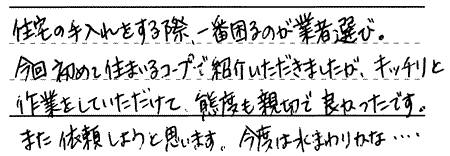 住宅の手入れをする際、一番困るのが業者選び。
今回初めて住まいるコープで紹介いただきましたが、キッチリと
作業をしていただけて、態度も親切で良かったです。
また依頼しようと思います。今度は水まわりかな….